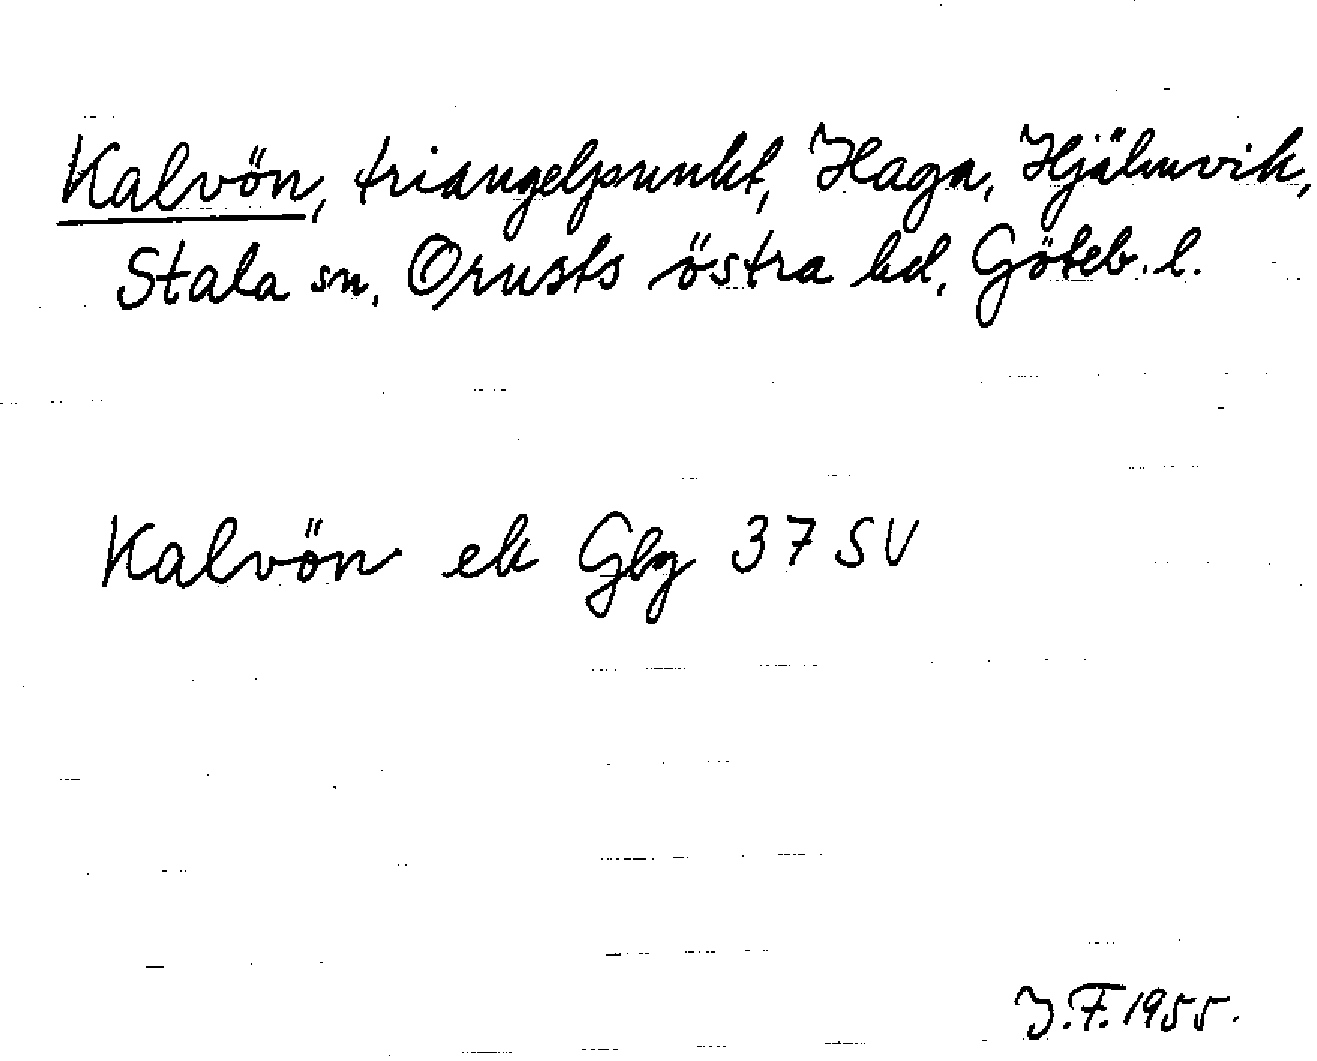 Kalvön, triangelpunkt, Haga, Hjälmvik,
Stala sn, Orusts östra hd, Göteb. l.
Kalvön ek Gbg 37 SV
J.F. 1955.